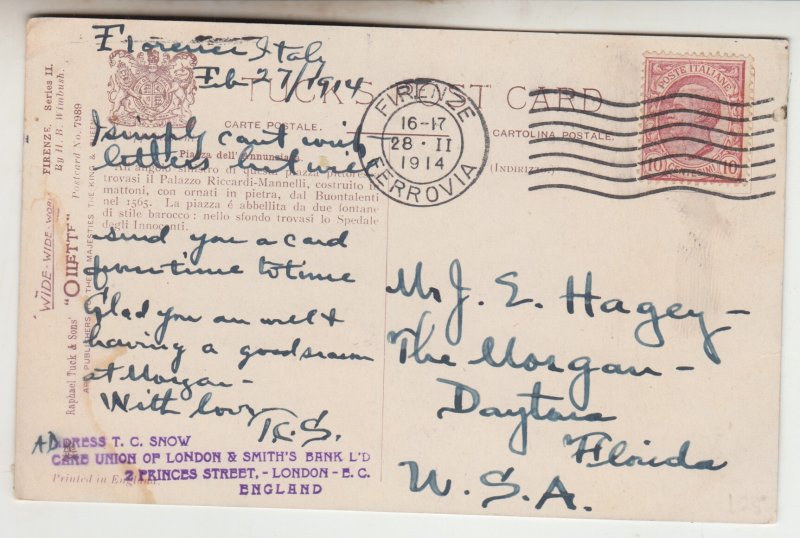 Florence Italy
Feb 27/1914
TUCK'S POST CARD
CARTE POSTALE.
CARTOLINA POSTALE.
(INDIRIZZO)
FIRENZE
16-17
28 · II
1914
FERROVIA
POSTE ITALIANE
10 10
I simply can't write
letters but will
Piazza dell'Annunziata
All'angolo sinistro di questa piazza
trovasi il Palazzo Riccardi-Mannelli, costruito in
mattoni, con ornati in pietra, dal Buontalenti
nel 1565. La piazza é abbellita da due fontane
di stile barocco: nello sfondo trovasi lo Spedale
degli Innocenti.
send you a card
from time to time
Glad you are well &
having a good season
at Morgan -
With love
T.C.S.
Mr J. E. Hagey -
The Morgan -
Daytona
Florida
U.S.A.
ADDRESS T. C. SNOW
CARE UNION OF LONDON & SMITH'S BANK L'D
2 PRINCES STREET, - LONDON - E. C.
ENGLAND
Printed in England
FIRENZE, Series II.
By H. B. Wimbush.
Postcard No. 7989
"WIDE-WIDE-WORLD
Raphael Tuck & Sons' "OILETTE"
ART PUBLISHERS TO THEIR MAJESTIES THE KING & QUEEN